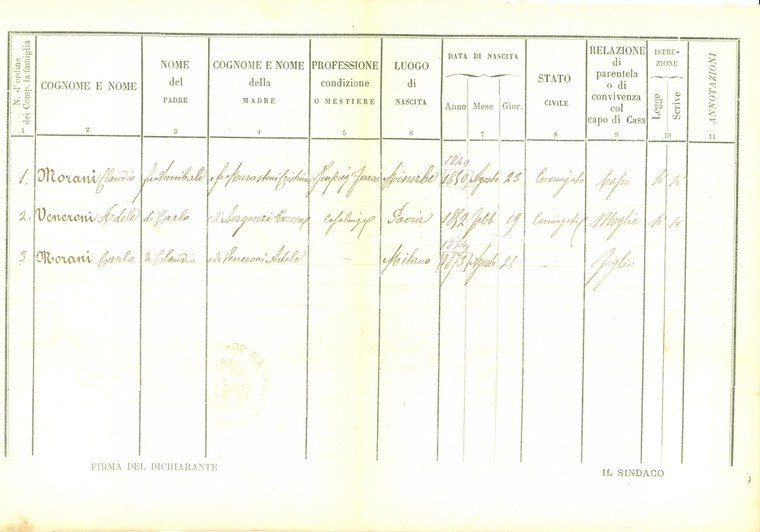 N. d'ordine dei Comp. la famiglia
COGNOME E NOME
NOME del PADRE
COGNOME E NOME della MADRE
PROFESSIONE condizione O MESTIERE
LUOGO di NASCITA
DATA DI NASCITA
Anno Mese Gior.
STATO CIVILE
RELAZIONE di parentela o di convivenza col capo di Casa
ISTRUZIONE
Legge Scrive
ANNOTAZIONI
1 2 3 4 5 6 7 8 9 10 11
1849
1. Morani Claudio fu Annibale e fu Cristina Minerbe 1850 Agosto 23 Capo si si
2. Veneroni Adele di Carlo e di casalinga Pavia 1852 Febb 19 Moglie si si
1879
3 Morani Carlo di Claudio e di Veneroni Adele — Milano 1873 Agosto 21 — Figlio
FIRMA DEL DICHIARANTE
IL SINDACO